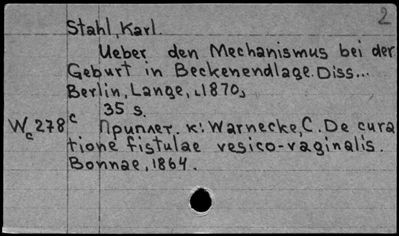 2
Stahl, Karl.
Ueber den Mechanismus bei der
Geburt in Beckenendlage. Diss...
Berlin, Lange, ‹1870›
35 s.
Wc278c Приплет. к: Warnecke, C. De cura
tione fistulae vesico-vaginalis.
Bonnae, 1864.